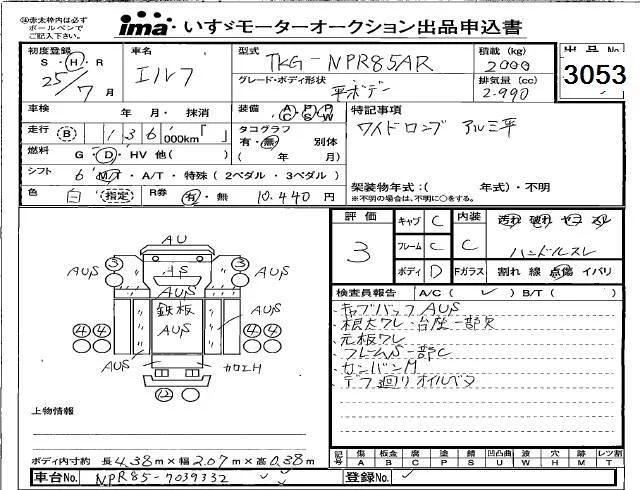 ※赤太枠内は必ずボールペンでご記入下さい。
ima いすゞモーターオークション出品申込書
初度登録 S・H・R 25/7月
車名 エルフ
型式 TKG-NPR85AR
積載 (kg) 2000
出品No. 3053
グレード・ボディ形状 平ボデー
排気量 (cc) 2.990
車検 年 月・抹消
装備 AC PS PW
特記事項
走行 B 136,000km「 」
タコグラフ 有・無 別体 ( 年 月)
ワイドロング アルミ平
燃料 G・D・HV 他( )
シフト 6 M/T・A/T・特殊(2ペダル・3ペダル)
架装物年式:( 年式)・不明
※不明の場合は、不明に○をする。
色 白 指定 R券 有・無 10.440円
評価 3
キャブ C 内装 C 汚れ 破れ ヤコゲ スレ
フレーム C ハンドルスレ
ボディ D Fガラス 割れ 線 点傷 イバリ
検査員報告 A/C( ✓ ) B/T( )
キャブバック AUS
根太ワレ・台座一部欠
元板ワレ
フレームS一部C
カンバンM
デフ廻りオイルベタ
AU
3 3
AUS AUS
AUS
鉄板
AUS AUS
4 4 4 4
AUS カロエH
12
上物情報
記号 傷 A 板金 B 腐 C 塗 P 錆 S 凹凸曲 U 波 W 穴 H 跡 M レツ割 T
ボディ内寸約 長4.38m×幅2.07m×高0.38m
車台No. NPR85-7039332
登録No.